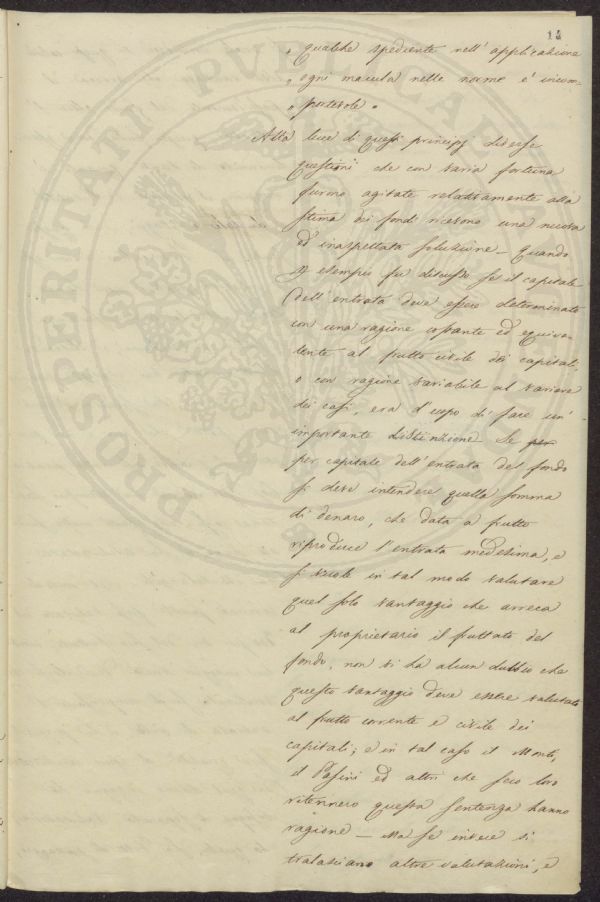 14
„ qualche spediente nell' applicazione
„ ogni macula nelle norme è incom=
„ portevole „
Alla luce di questi principj diverse
questioni che con varia fortuna
furono agitate relativamente alla
stima dei fondi ricevono una nuova
ed inaspettata soluzione – Quando
p. esempio fu discusso se il capitale
dell' entrata deve essere determinato
con una ragione costante ed equiva-
lente al frutto civile dei capitali,
o con ragione variabile al variare
dei casi, era d'uopo di fare un'
importante distinzione. Se per
per capitale dell' entrata del fondo
si deve intendere quella somma
di denaro, che data a frutto
riproduce l'entrata medesima, e
si vuole in tal modo valutare
quel solo vantaggio che arreca
al proprietario il fruttato del
fondo, non vi ha alcun dubbio che
questo vantaggio deve essere valutato
al frutto corrente e civile dei
capitali; e in tal caso il
il Pasini ed altri che seco loro
ritennero questa sentenza hanno
ragione – Ma se invece si
tralasciano altre valutazioni, e
PROSPERITATI PVBLICAE